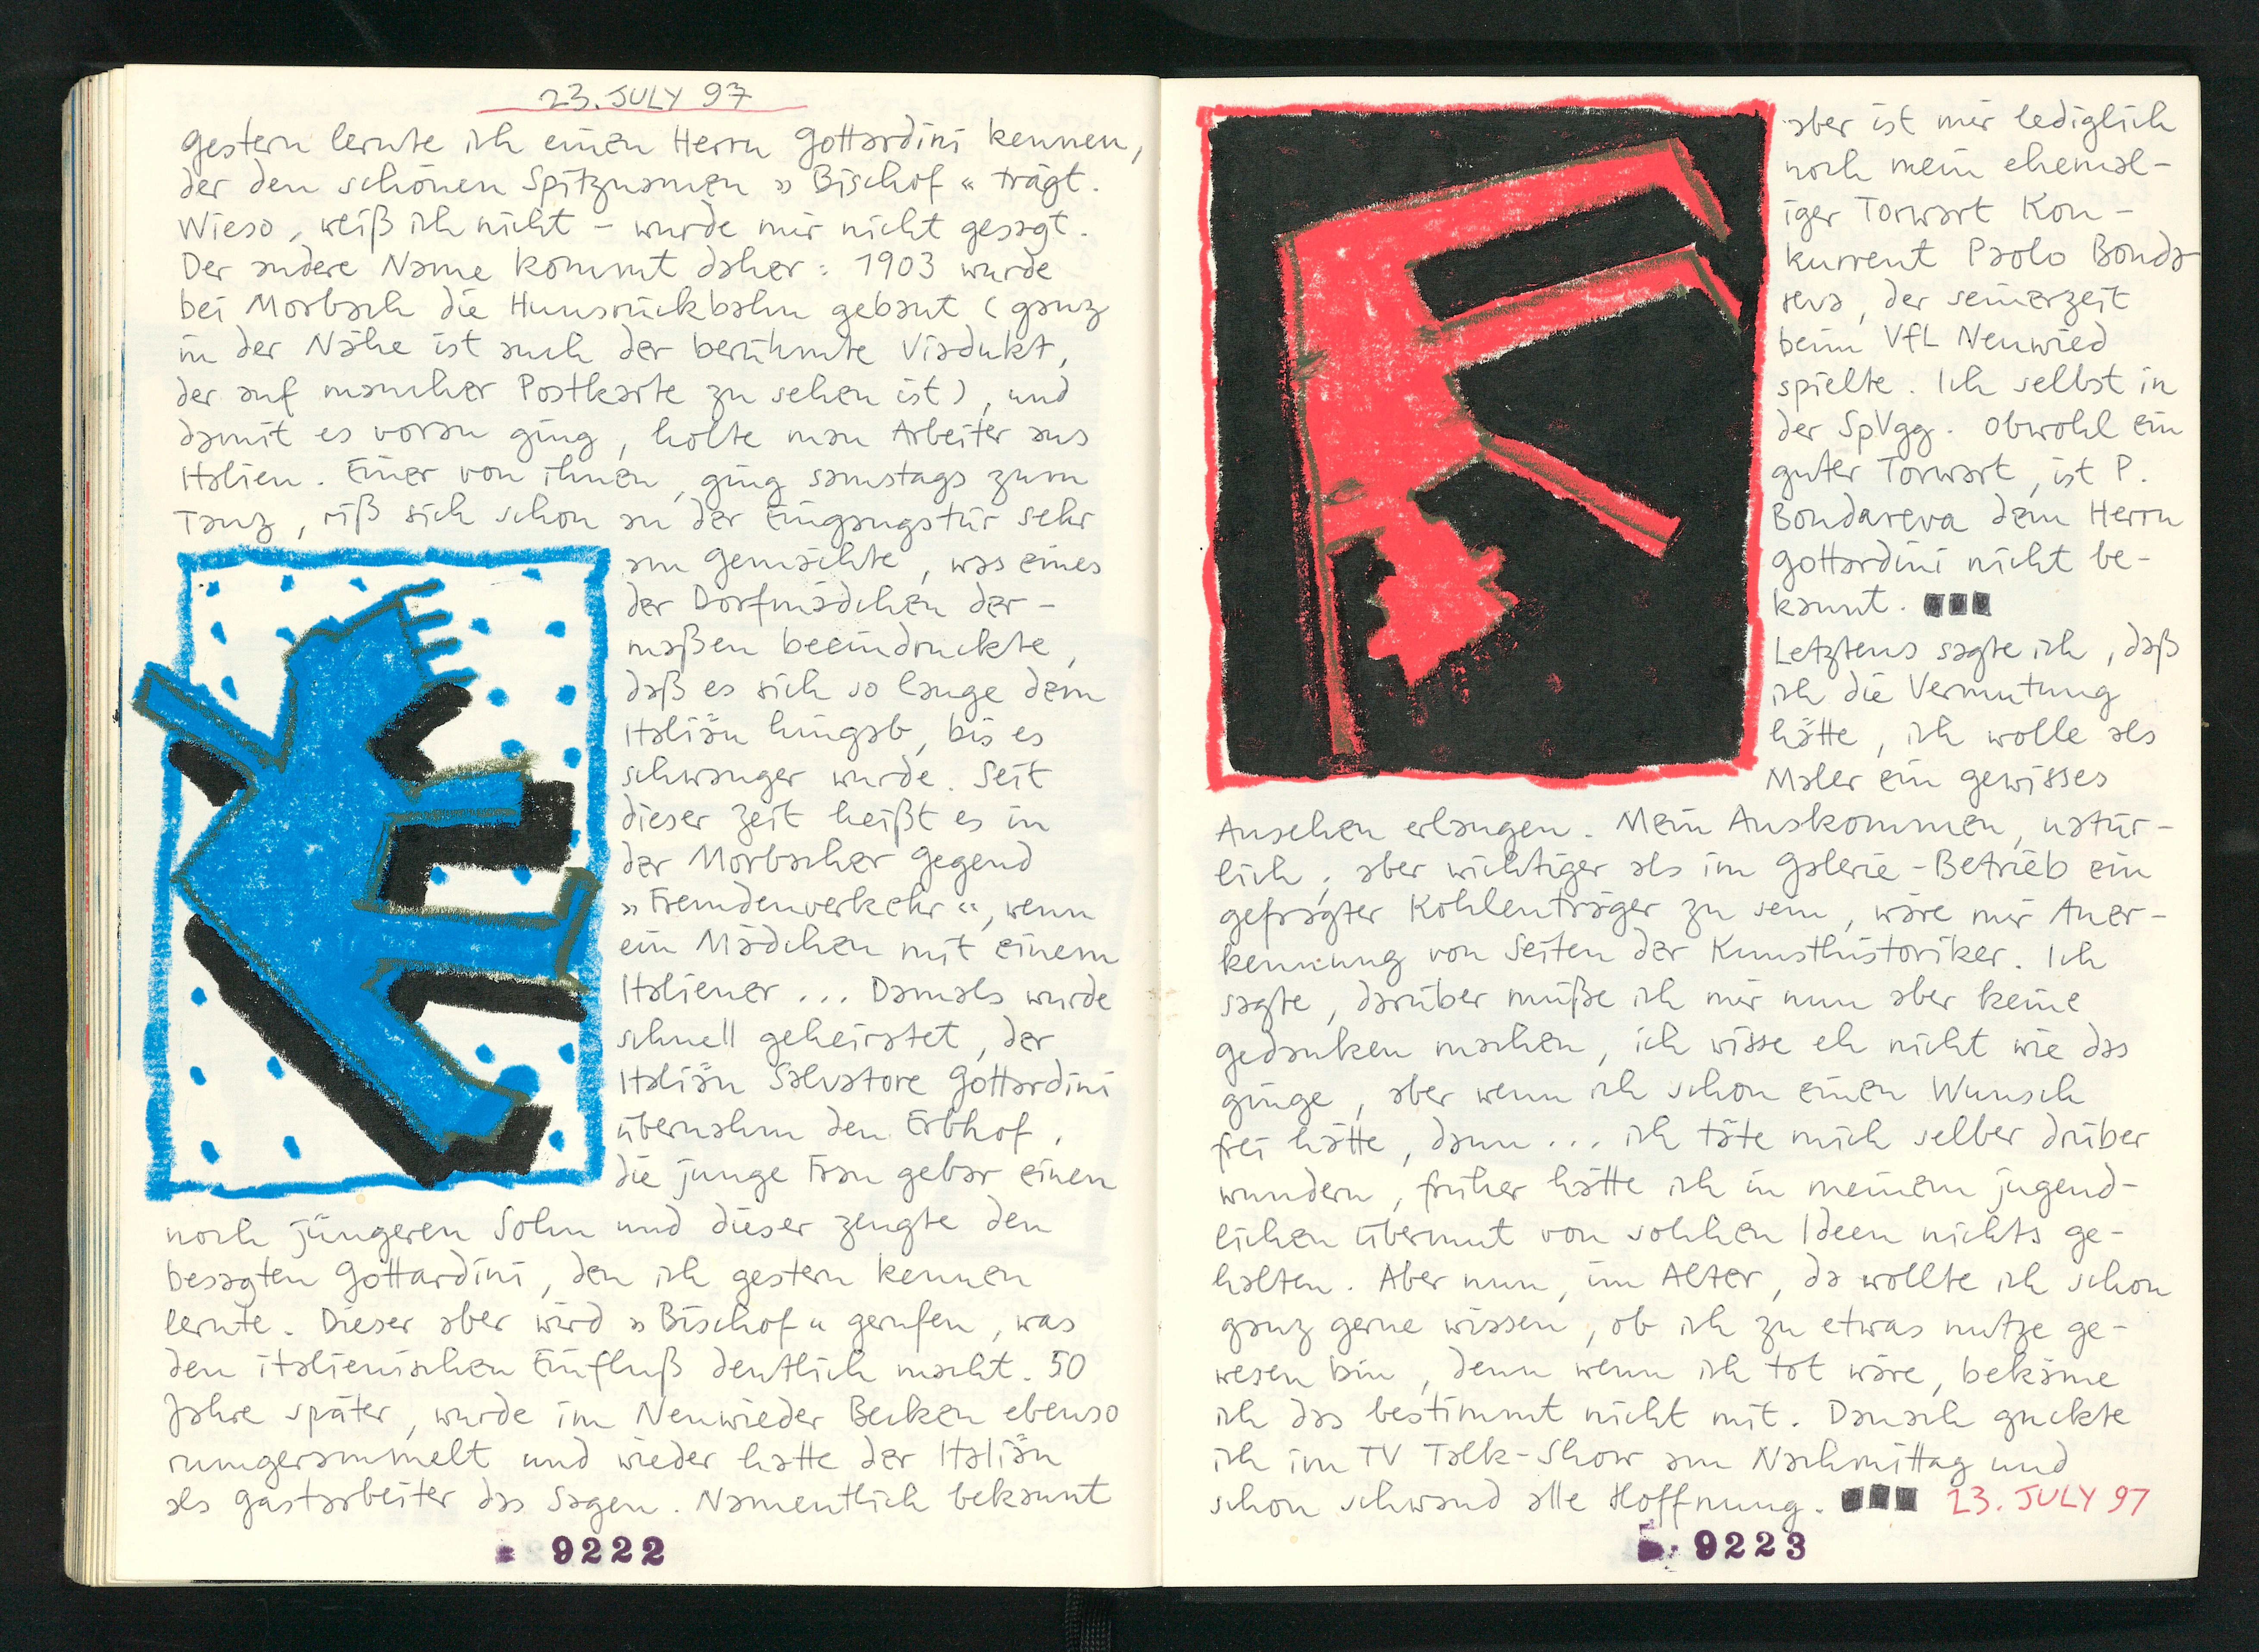 23. JULY 97
Gestern lernte ich einen Herrn Gottardini kennen,
der den schönen Spitznamen » Bischof « trägt.
Wieso, weiß ich nicht – wurde mir nicht gesagt.
Der andere Name kommt daher: 1903 wurde
bei Morbach die Hunsrückbahn gebaut (ganz
in der Nähe ist auch der berühmte Viadukt,
der auf mancher Postkarte zu sehen ist), und
damit es voran ging, holte man Arbeiter aus
Italien. Einer von ihnen, ging samstags zum
Tanz, riß sich schon an der Eingangstür sehr
am Gemächte, was eines
der Dorfmädchen der-
maßen beeindruckte,
daß es sich so lange dem
Italiän hingab, bis es
schwanger wurde. Seit
dieser Zeit heißt es in
der Morbacher Gegend
»Fremdenverkehr«, wenn
ein Mädchen mit einem
Italiener ... Damals wurde
schnell geheiratet, der
Italiän Salvatore Gottardini
übernahm den Erbhof,
die junge Frau gebar einen
noch jüngeren Sohn und dieser zeugte den
besagten Gottardini, den ich gestern kennen
lernte. Dieser aber wird »Bischof« gerufen, was
den italienischen Einfluß deutlich macht. 50
Jahre später, wurde im Neuwieder Becken ebenso
rumgerammelt und wieder hatte der Italiän
als Gastarbeiter das Sagen. Namentlich bekannt
9222
aber ist mir lediglich
noch mein ehemal-
iger Torwart Kon-
kurrent Paolo Bonda
reva, der seinerzeit
beim VfL Neuwied
spielte. Ich selbst in
der SpVgg. Obwohl ein
guter Torwart, ist P.
Bondareva dem Herrn
Gottardini nicht be-
kannt. ■■■
Letztens sagte ich, daß
ich die Vermutung
hätte, ich wolle als
Maler ein gewisses
Ansehen erlangen. Mein Auskommen, natür-
lich, aber wichtiger als im Galerie-Betrieb ein
gefragter Kohlenträger zu sein, wäre mir Aner-
kennung von Seiten der Kunsthistoriker. Ich
sagte, darüber müße ich mir nun aber keine
Gedanken machen, ich wisse eh nicht wie das
ginge, aber wenn ich schon einen Wunsch
frei hätte, dann ... ich täte mich selber drüber
wundern, früher hätte ich in meinem jugend-
lichen Übermut von solchen Ideen nichts ge-
halten. Aber nun, im Alter, da wollte ich schon
ganz gerne wissen, ob ich zu etwas nutze ge-
wesen bin, denn wenn ich tot wäre, bekäme
ich das bestimmt nicht mit. Danach guckte
ich im TV Talk-Show am Nachmittag und
schon schwand alle Hoffnung. ■■■ 23. JULY 97
9223